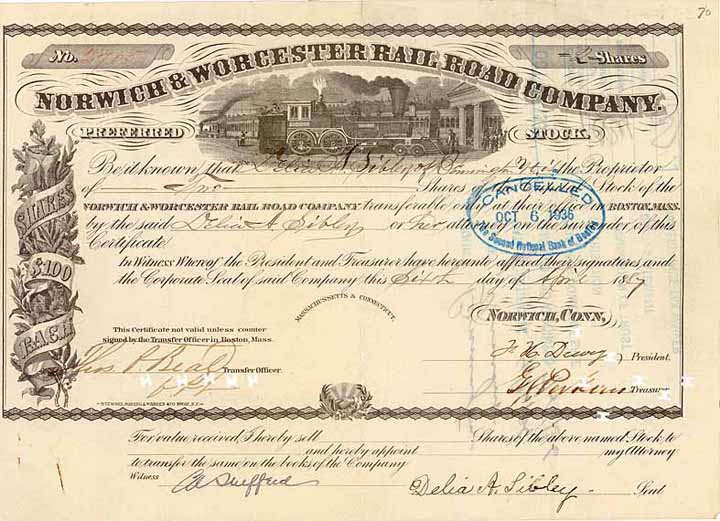 70
No. 2705
2 Shares
NORWICH & WORCESTER RAIL ROAD COMPANY.
PREFERRED STOCK.
Be it known, that Delia A. Sibley of the Proprietor
of Two Shares Stock of the
NORWICH & WORCESTER RAIL ROAD COMPANY transferable only at their office BOSTON, MASS.
by the said Delia A. Sibley or her attorney on the surrender of this
Certificate.
CANCELLED
OCT 6 1936
The Second National Bank of Boston
SHARES
$100
EACH
In Witness Whereof the President and Treasurer have hereunto affixed their signatures and
the Corporate Seal of said Company this day of April 18
MASSACHUSETTS & CONNECTICUT.
NORWICH, CONN,
This Certificate not valid unless counter
signed by the Transfer Officer in Boston, Mass.
Thos. P. Beal Transfer Officer.
President.
Treasurer
For value received, I hereby sell Shares of the above named Stock to
and hereby appoint my Attorney
to transfer the same on the books of the Company
Witness
Delia A. Sibley Seal